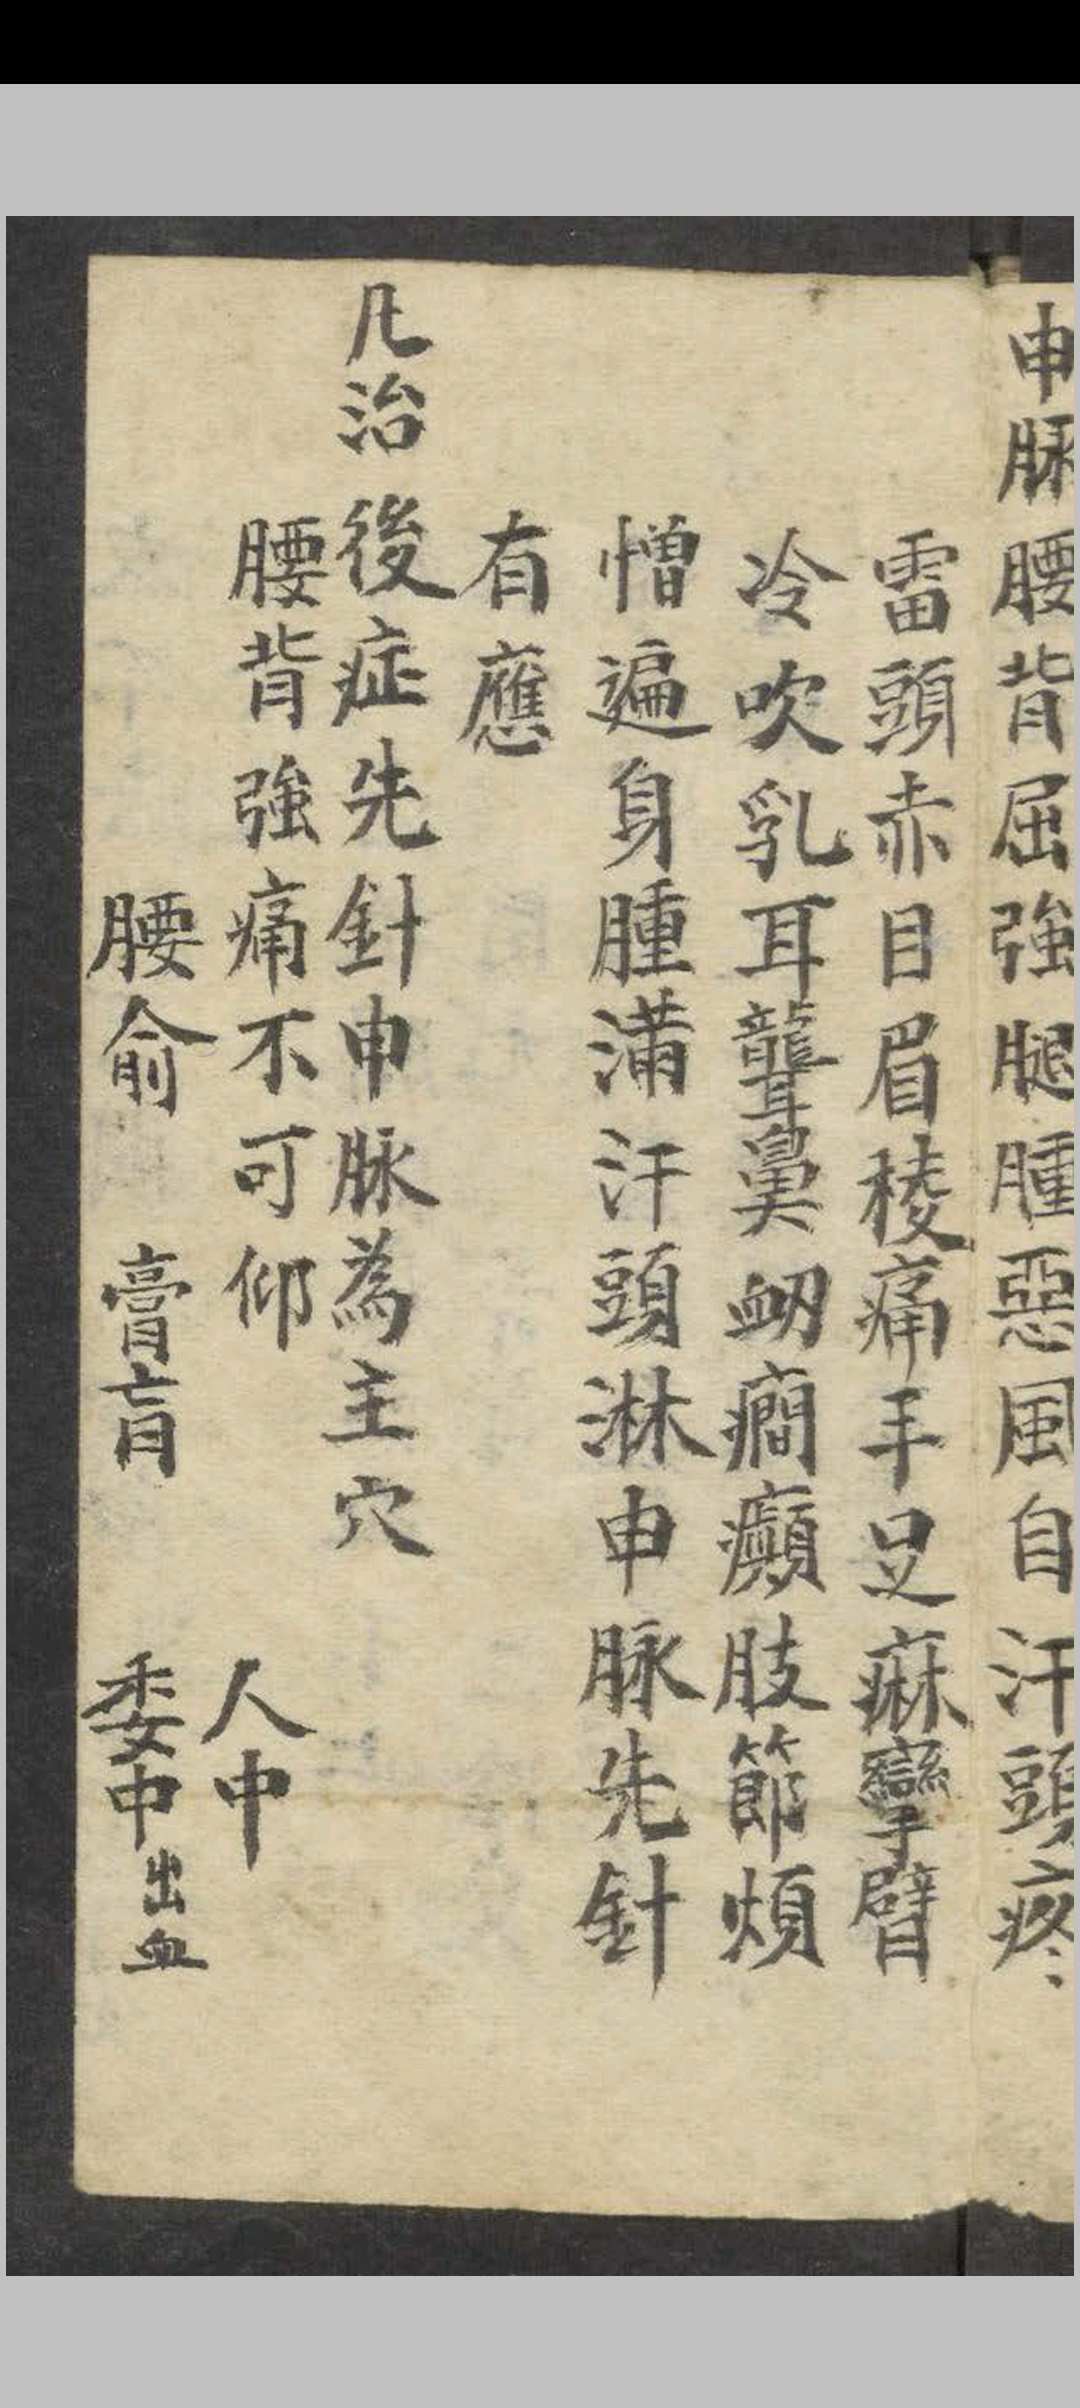 申脉腰背屈強腿腫惡風自汗頭疼
雷頭赤目眉稜痛手足麻攣臂
冷吹乳耳聾鼻衂癇癲肢節煩
憎遍身腫滿汗頭淋申脉先針
有應
凡治後症先針申脉為主穴
腰背強痛不可仰 人中
腰俞 膏肓 委中出血